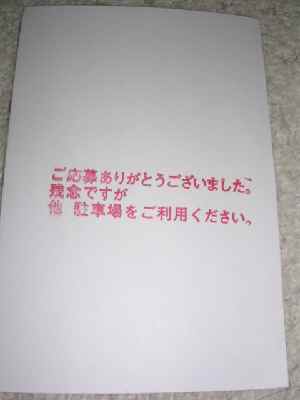 ご応募ありがとうございました。
残念ですが
他 駐車場をご利用ください。